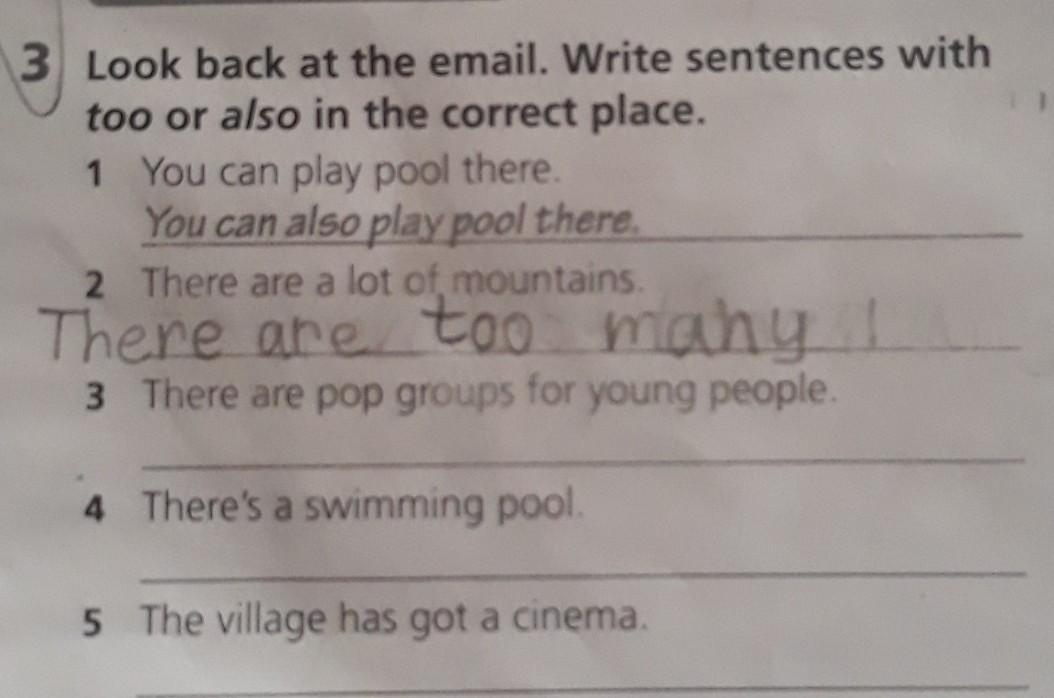 3 Look back at the email. Write sentences with
too or also in the correct place.
1 You can play pool there.
You can also play pool there.
2 There are a lot of mountains.
There are too many
3 There are pop groups for young people.
4 There's a swimming pool.
5 The village has got a cinema.